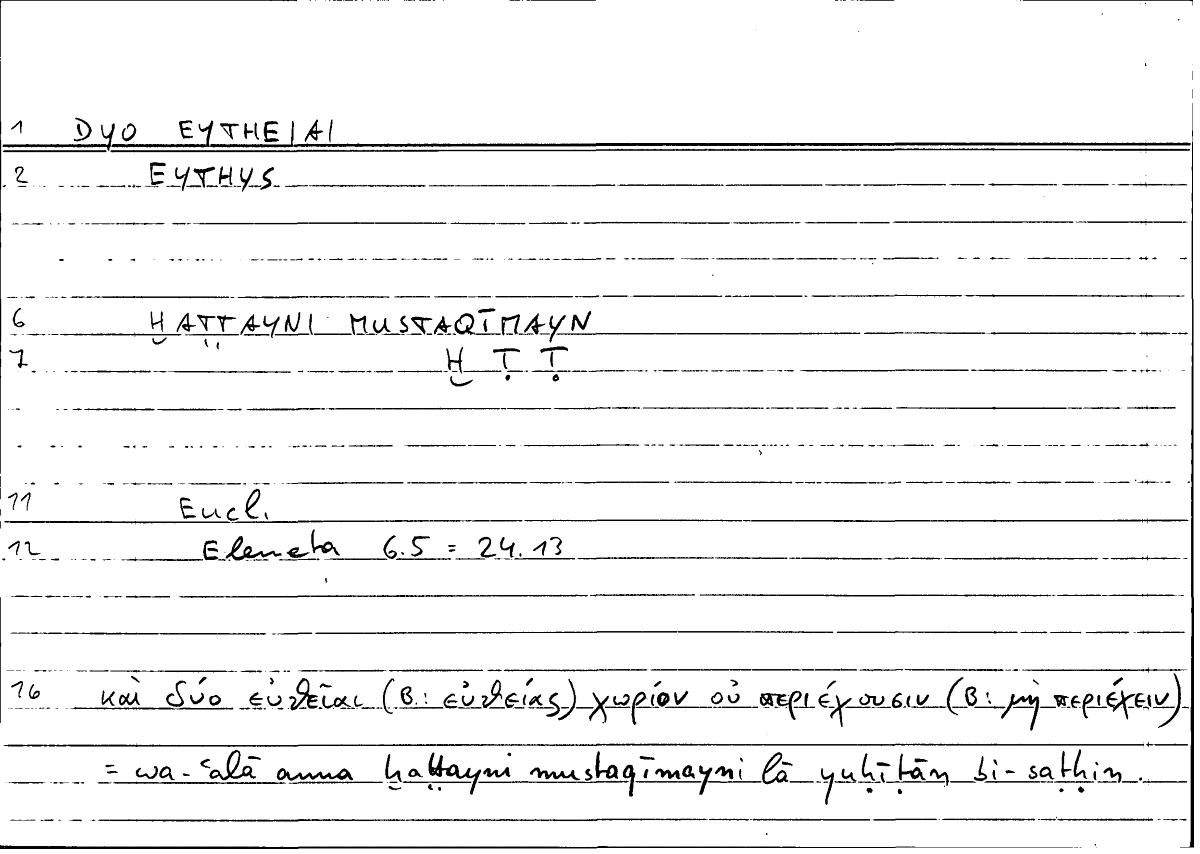 1 DYO EYTHEIAI
2 EYTHYS
6 ḪAṬṬAYNI MUSTAQĪMAYN
7 Ḫ Ṭ Ṭ
11 Eucl.
12 Elemeta 6.5 = 24.13
16 καὶ δύο εὐθεῖαι (B: εὐθείας) χωρίον οὐ περιέχουσιν (B: μὴ περιέχειν)
= wa-ʿalā anna ḫaṭṭayni mustaqīmayni lā yuḥīṭān bi-saṭḥin.